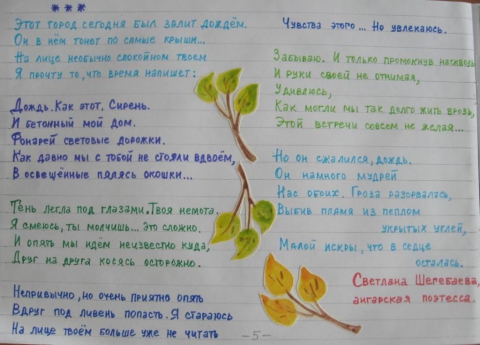 ***
Этот город сегодня был залит дождём.
Он в нём тонет по самые крыши...
На лице необычно спокойном твоём
Я прочту то, что время напишет:
Дождь. Как этот. Сирень.
И бетонный мой дом.
Фонарей световые дорожки.
Как давно мы с тобой не стояли вдвоём,
В освещённые пялясь окошки...
Тень легла под глазами. Твоя немота.
Я смеюсь, ты молчишь... Это сложно.
И опять мы идём неизвестно куда,
Друг на друга косясь осторожно.
Непривычно, но очень приятно опять
Вдруг под ливень попасть. Я стараюсь
На лице твоём больше уже не читать
Чувства этого... Но увлекаюсь.
Забываю. И только промокнув насквозь
И руки своей не отнимая,
Удивлюсь,
Как могли мы так долго жить врозь,
Этой встречи совсем не желая...
Но он сжалился, дождь.
Он намного мудрей
Нас обоих. Гроза разорвалась,
Выбив пламя из пеплом
укрытых углей,
Малой искры, что в седце
осталась.
Светлана Шегебаева,
ангарская поэтесса.
-5-